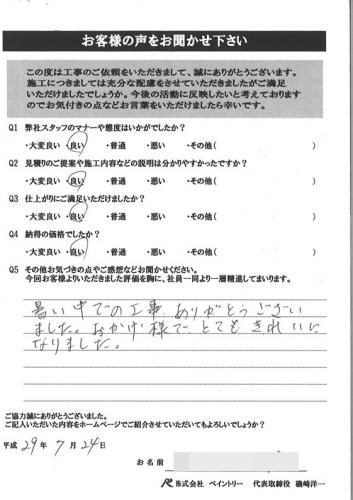 お客様の声をお聞かせ下さい
この度は工事のご依頼をいただきまして、誠にありがとうございます。
施工につきましては充分な配慮をさせていただきましたがご満足
いただけましたでしょうか。今後の活動に反映したいと考えております
のでお気付きの点などお言葉をいただけましたら幸いです。
Q1 弊社スタッフのマナーや態度はいかがでしたか?
・大変良い ・良い ・普通 ・悪い ・その他( )
Q2 見積りのご提案や施工内容などの説明は分かりやすかったですか?
・大変良い ・良い ・普通 ・悪い ・その他( )
Q3 仕上がりにご満足いただけましたか?
・大変良い ・良い ・普通 ・悪い ・その他( )
Q4 納得の価格でしたか?
・大変良い ・良い ・普通 ・悪い ・その他( )
Q5 その他お気づきの点やご感想などお聞かせください。
今回お客様よりいただきました評価を胸に、社員一同より一層精進してまいります。
暑い中での工事、ありがとうござい
ました。おかげ様で、とてもきれいに
なりました。
ご協力誠にありがとうございました。
ご記入いただいた内容をホームページでご紹介させていただいてもよろしいでしょうか?
平成 29年 7月 24日
お名前
株式会社 ペイントリー 代表取締役 磯崎洋一